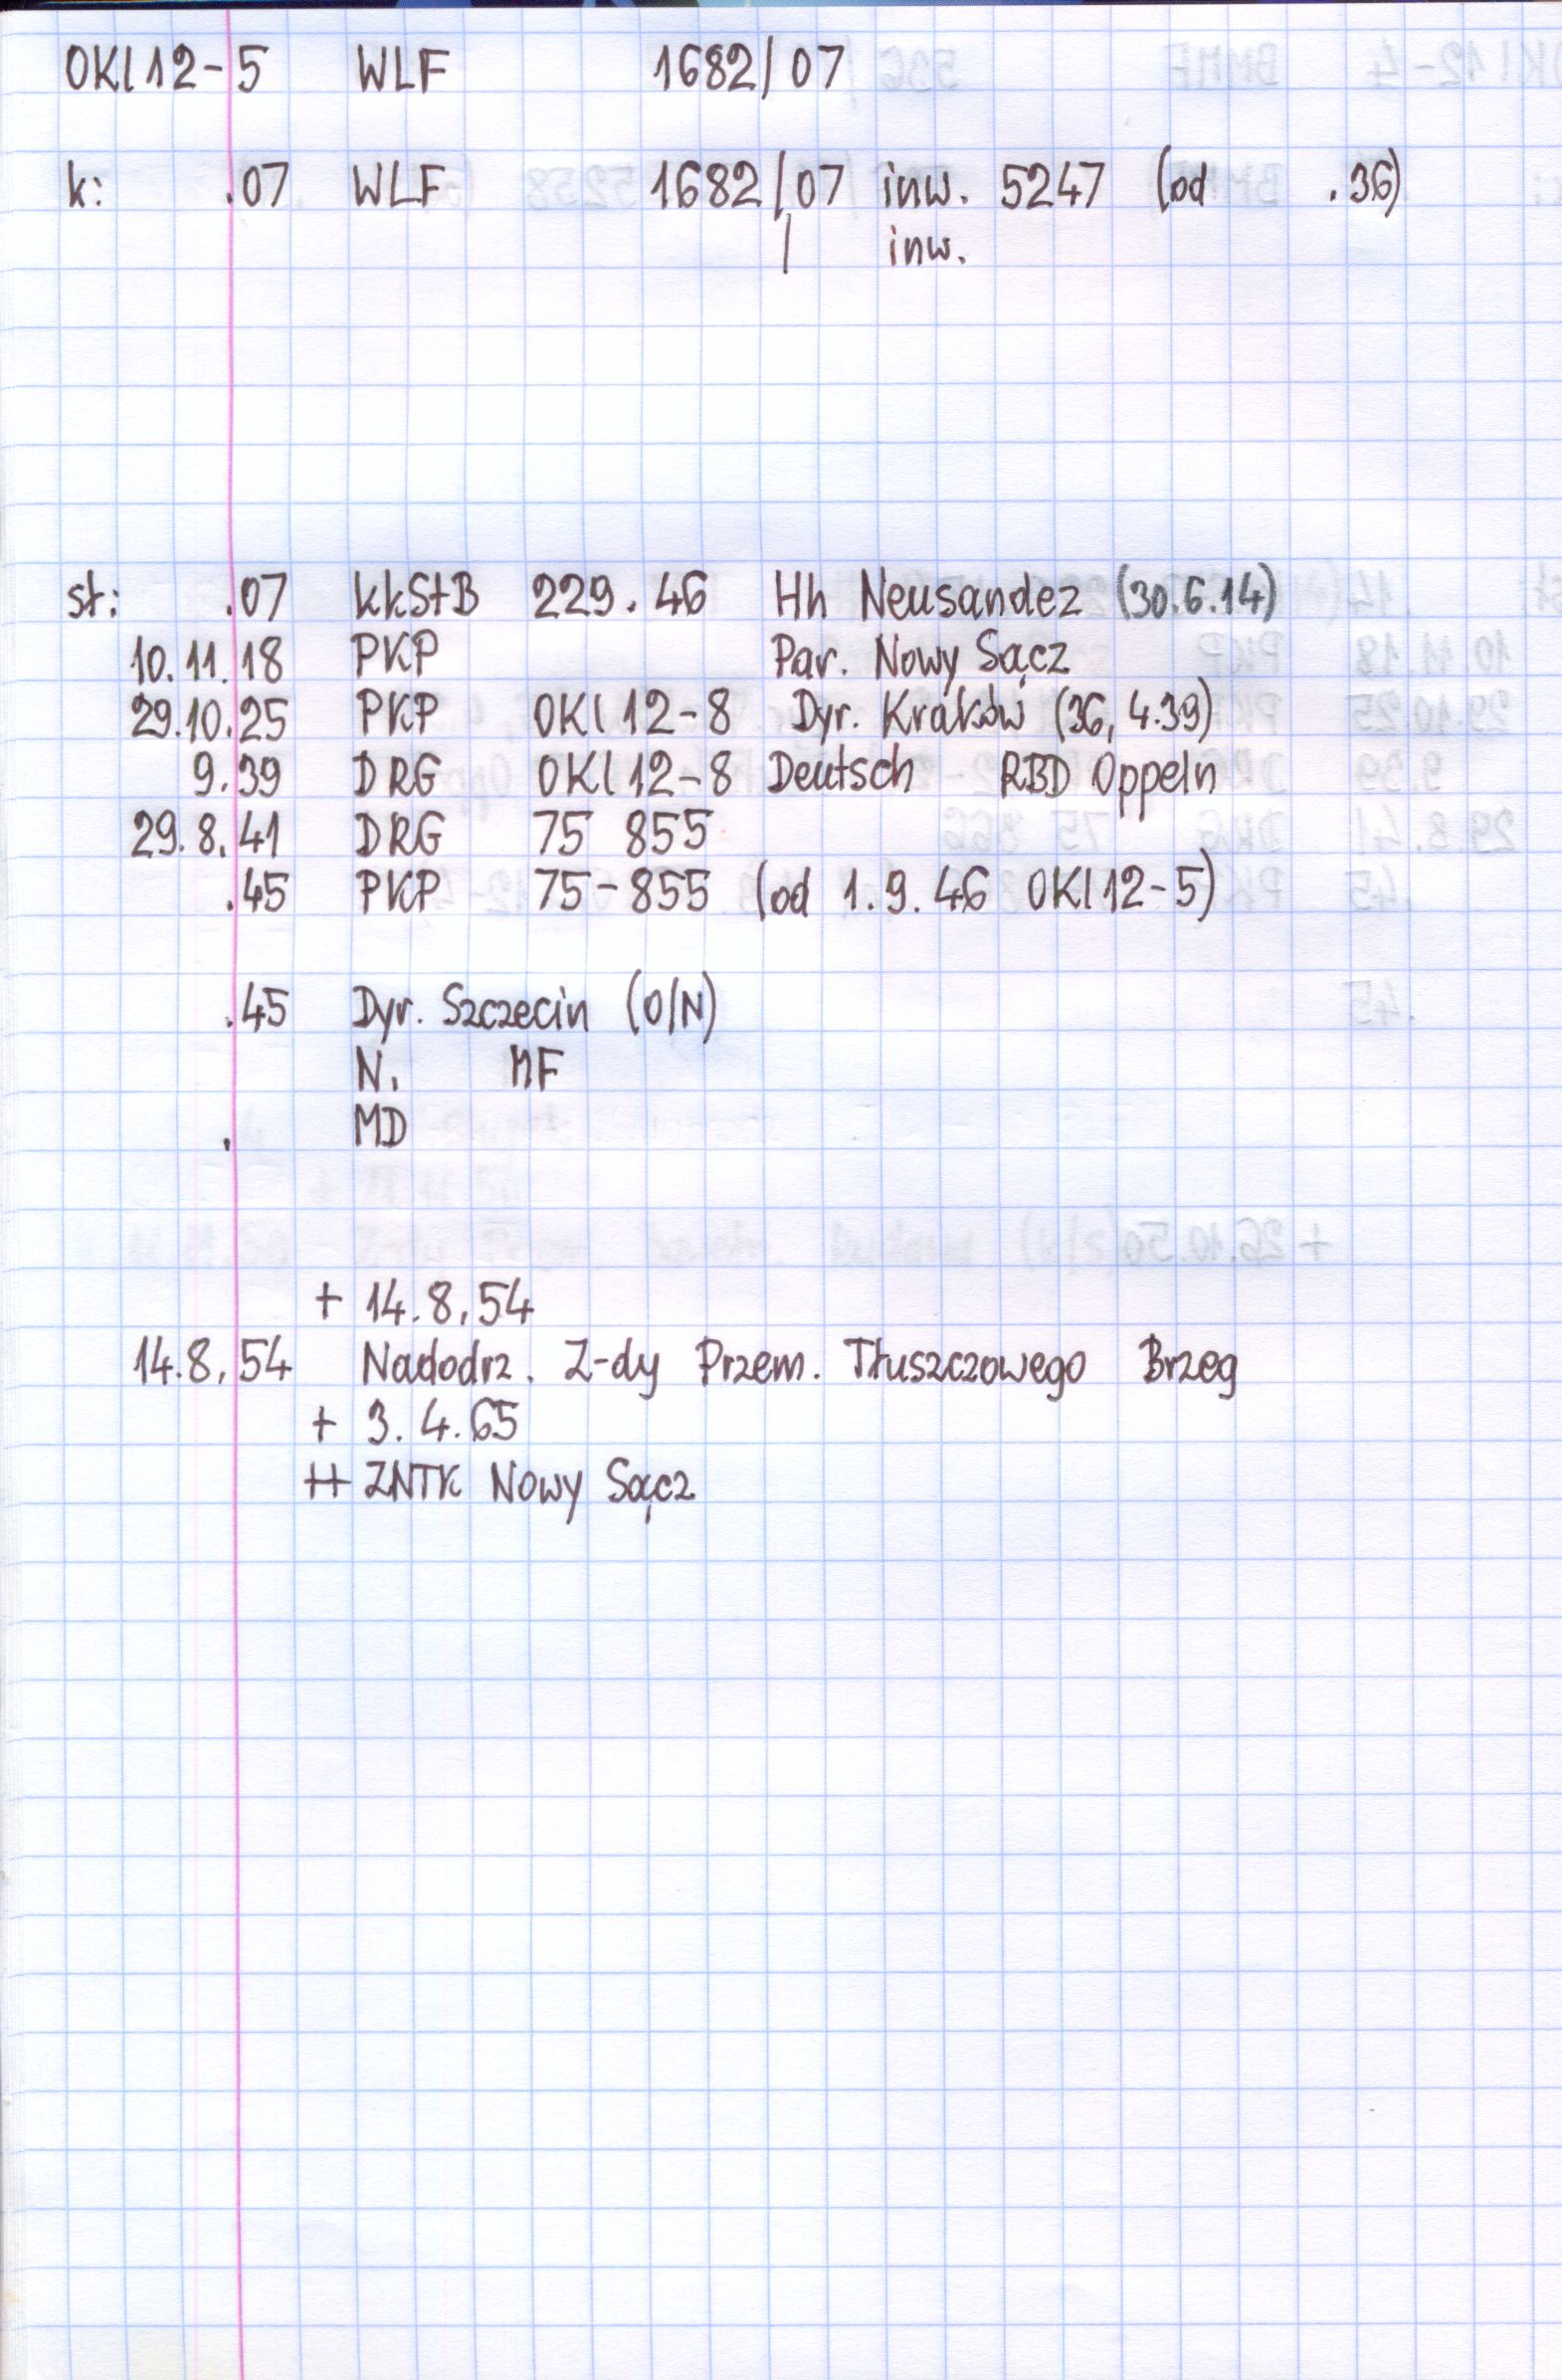 OKl12-5 WLF 1682/07
k: .07 WLF 1682/07 inw. 5247 (od .36)
/ inw.
st: .07 kkStB 229.46 Hh Neusandez (30.6.14)
10.11.18 PKP Par. Nowy Sącz
29.10.25 PKP OKl12-8 Dyr. Kraków (36, 4.39)
9.39 DRG OKl12-8 Deutsch RBD Oppeln
29.8.41 DRG 75 855
.45 PKP 75-855 (od 1.9.46 OKl12-5)
.45 Dyr. Szczecin (O/N)
N. MF
. MD
+ 14.8.54
14.8.54 Nadodrz. Z-dy Przem. Tłuszczowego Brzeg
+ 3.4.65
++ ZNTK Nowy Sącz